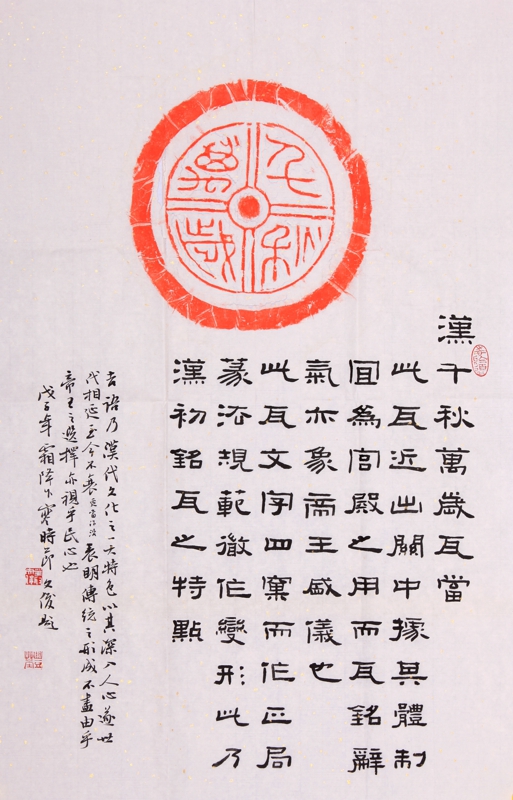 千秋萬歲
漢千秋萬歲瓦當
此瓦近出關中據其體制
宜為宮殿之用而瓦銘辭
氣亦象帝王盛儀也
此瓦文字四窠而作正局
篆法規範微作變形此乃
漢初銘瓦之特點
吉語乃漢代文化之一大特色以其深入人心遂世
代相延至今不衰表明傳統之形成不盡由乎
帝王之選擇亦視乎民心也
戊子年霜降下寒時節文俊題